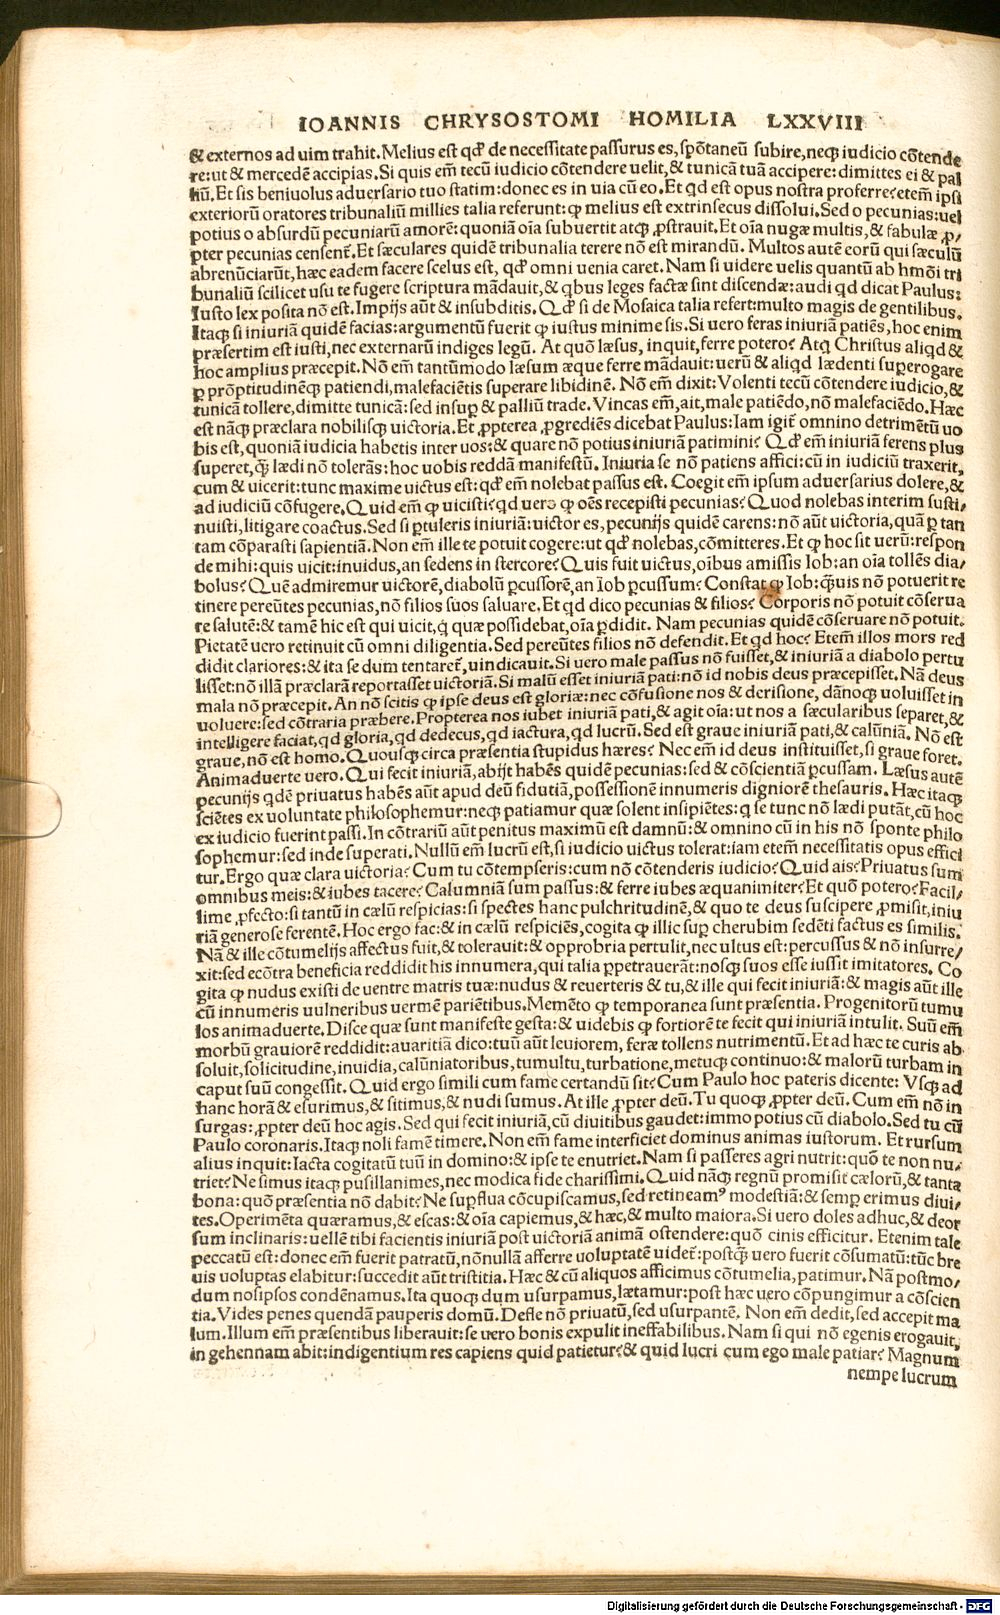 IOANNIS CHRYSOSTOMI HOMILIA LXXVIII
& externos ad uim trahit. Melius est qđ de necessitate passurus es, spõtaneũ subire, neqȝ iudicio cõtende
re: ut & mercedẽ accipias. Si quis em̃ tecũ iudicio cõtendere uelit, & tunicã tuã accipere: dimittes ei & pal
liũ. Et sis beniuolus aduersario tuo statim: donec es in uia cũ eo. Et qd est opus nostra proferre? etem̃ ipsi
exteriorũ oratores tribunaliũ millies talia referunt: ꝙ melius est extrinsecus dissolui. Sed o pecunias: uel
potius o absurdũ pecuniarũ amorẽ: quoniã oĩa subuertit atqȝ ꝓstrauit. Et oĩa nugæ multis, & fabulæ ꝓ/
pter pecunias censent̃. Et sæculares quidẽ tribunalia terere nõ est mirandũ. Multos autẽ eorũ qui sæculũ
abrenũciarũt, hæc eadem facere scelus est, qđ omni uenia caret. Nam si uidere uelis quantũ ab hmõi tri
bunaliũ scilicet usu te fugere scriptura mãdauit, & qbus leges factæ sint discendæ: audi qd dicat Paulus:
Iusto lex posita nõ est. Impijs aũt & insubditis. Qđ si de Mosaica talia refert: multo magis de gentilibus.
Itaqȝ si iniuriã quidẽ facias: argumentũ fuerit ꝙ iustus minime sis. Si uero feras iniuriã patiẽs, hoc enim
præsertim est iusti, nec externarũ indiges legũ. At quõ læsus, inquit, ferre potero? Atq Christus aliqd &
hoc amplius præcepit. Nõ em̃ tantũmodo læsum æque ferre mãdauit: uerũ & aliqd lædenti suꝑerogare
ꝑ prõptitudinẽqȝ patiendi, malefaciẽtis superare libidinẽ. Nõ em̃ dixit: Volenti tecũ cõtendere iudicio, &
tunicã tollere, dimitte tunicã: sed insuꝑ & palliũ trade. Vincas em̃, ait, male patiẽdo, nõ malefaciẽdo. Hæc
est nãqȝ præclara nobilisqȝ uictoria. Et ꝓpterea ꝓgrediẽs dicebat Paulus: Iam igit̃ omnino detrimẽtũ uo
bis est, quoniã iudicia habetis inter uos: & quare nõ potius iniuriã patimini? Qđ em̃ iniuriã ferens plus
superet, q̃ȝ lædi nõ tolerãs: hoc uobis reddã manifestũ. Iniuria se nõ patiens affici: cũ in iudiciũ traxerit,
cum & uicerit: tunc maxime uictus est: qđ em̃ nolebat passus est. Coegit em̃ ipsum aduersarius dolere, &
ad iudiciũ cõfugere. Quid em̃ ꝙ uicisti? qd uero ꝙ oẽs recepisti pecunias? Quod nolebas interim susti/
nuisti, litigare coactus. Sed si ꝑtuleris iniuriã: uictor es, pecunijs quidẽ carens: nõ aũt uictoria, quã ꝑ tan
tam cõparasti sapientiã. Non em̃ ille te potuit cogere: ut qđ nolebas, cõmitteres. Et ꝙ hoc sit uerũ: respon
de mihi: quis uicit: inuidus, an sedens in stercore? Quis fuit uictus, oĩbus amissis Iob: an oĩa tollẽs dia/
bolus? Quẽ admiremur uictorẽ, diabolũ ꝑcussorẽ, an Iob ꝑcussum? Constat ꝙ Iob: q̃ȝuis nõ potuerit re
tinere pereũtes pecunias, nõ filios suos saluare. Et qd dico pecunias & filios? Corporis nõ potuit cõserua
re salutẽ: & tamẽ hic est qui uicit, q̃ quæ possidebat, oĩa ꝑdidit. Nam pecunias quidẽ cõseruare nõ potuit.
Pietatẽ uero retinuit cũ omni diligentia. Sed pereũtes filios nõ defendit. Et qd hoc? Etem̃ illos mors red
didit clariores: & ita se dum tentaret̃, uindicauit. Si uero male passus nõ fuisset, & iniuriã a diabolo pertu
lisset: nõ illã præclarã reportasset uictoriã. Si malũ esset iniuriã pati: nõ id nobis deus præcepisset. Nã deus
mala nõ præcepit. An nõ scitis ꝙ ipse deus est gloriæ: nec cõfusione nos & derisione, dãnoqȝ uoluisset in
uoluere: sed cõtraria præbere. Propterea nos iubet iniuriã pati, & agit oĩa: ut nos a sæcularibus separet, &
intelligere faciat, qd gloria, qd dedecus, qd iactura, qd lucrũ. Sed est graue iniuriã pati, & calũniã. Nõ est
graue, nõ est homo. Quousqȝ circa præsentia stupidus hæres? Nec em̃ id deus instituisset, si graue foret.
Animaduerte uero. Qui fecit iniuriã, abijt habẽs quidẽ pecunias: sed & cõscientiã ꝑcussam. Læsus autẽ
pecunijs qdẽ priuatus habẽs aũt apud deũ fidutiã, possessionẽ innumeris digniorẽ thesauris. Hæc itaqȝ
sciẽtes ex uoluntate philosophemur: neqȝ patiamur quæ solent insipiẽtes: q se tunc nõ lædi putãt, cũ hoc
ex iudicio fuerint passi. In cõtrariũ aũt penitus maximũ est damnũ: & omnino cũ in his nõ sponte philo
sophemur: sed inde superati. Nullũ em̃ lucrũ est, si iudicio uictus tolerat: iam etem̃ necessitatis opus effici
tur. Ergo quæ clara uictoria? Cum tu cõtempseris: cum nõ cõtenderis iudicio? Quid ais? Priuatus sum
omnibus meis: & iubes tacere? Calumniã sum passus: & ferre iubes æquanimiter? Et quõ potero? Facil/
lime ꝓfecto: si tantũ in cælũ respicias: si spectes hanc pulchritudinẽ, & quo te deus suscipere ꝓmisit, iniu
riã generose ferentẽ. Hoc ergo fac: & in cælũ respiciẽs, cogita ꝙ illic suꝑ cherubim sedẽti factus es similis.
Nã & ille cõtumelijs affectus fuit, & tolerauit: & opprobria pertulit, nec ultus est: percussus & nõ insurre/
xit: sed ecõtra beneficia reddidit his innumera, qui talia ꝑpetrauerãt: nosqȝ suos esse iussit imitatores. Co
gita ꝙ nudus existi de uentre matris tuæ: nudus & reuerteris & tu, & ille qui fecit iniuriã: & magis aũt ille
cũ innumeris uulneribus uermẽ pariẽtibus. Memẽto ꝙ temporanea sunt præsentia. Progenitorũ tumu
los animaduerte. Disce quæ sunt manifeste gesta: & uidebis ꝙ fortiorẽ te fecit qui iniuriã intulit. Suũ em̃
morbũ grauiorẽ reddidit: auaritiã dico: tuũ aũt leuiorem, feræ tollens nutrimentũ. Et ad hæc te curis ab
soluit, solicitudine, inuidia, calũniatoribus, tumultu, turbatione, metuqȝ continuo: & malorũ turbam in
caput suũ congessit. Quid ergo si mihi cum fame certandũ sit? Cum Paulo hoc pateris dicente: Vsqȝ ad
hanc horã & esurimus, & sitimus, & nudi sumus. At ille ꝓpter deũ. Tu quoqȝ ꝓpter deũ. Cum em̃ nõ in
surgas: ꝓpter deũ hoc agis. Sed qui fecit iniuriã, cũ diuitibus gaudet: immo potius cũ diabolo. Sed tu cũ
Paulo coronaris. Itaqȝ noli famẽ timere. Non em̃ fame interficiet dominus animas iustorum. Et rursum
alius inquit: Iacta cogitatũ tuũ in domino: & ipse te enutriet. Nam si passeres agri nutrit: quõ te non nu/
triet? Ne simus itaqȝ pusillanimes, nec modica fide charissimi. Quid nãqȝ regnũ promisit cælorũ, & tanta
bona: quõ præsentia nõ dabit? Ne suꝑflua cõcupiscamus, sed retineamꝰ modestiã: & semꝑ erimus diui/
tes. Operimẽta quæramus, & escas: & oĩa capiemus, & hæc, & multo maiora. Si uero doles adhuc, & deor
sum inclinaris: uellẽ tibi facientis iniuriã post uictoriã animã ostendere: quõ cinis efficitur. Etenim tale
peccatũ est: donec em̃ fuerit patratũ, nõnullã afferre uoluptatẽ uidet̃: postqȝ̃ uero fuerit cõsumatũ: tũc bre
uis uoluptas elabitur: succedit aũt tristitia. Hæc & cũ aliquos afficimus cõtumelia, patimur. Nã postmo/
dum nosipsos condẽnamus. Ita quoqȝ dum usurpamus, lætamur: post hæc uero cõpungimur a cõscien
tia. Vides penes quendã pauperis domũ. Defle nõ priuatũ, sed usurpantẽ. Non em̃ dedit, sed accepit ma
lum. Illum em̃ præsentibus liberauit: se uero bonis expulit ineffabilibus. Nam si qui nõ egenis erogauit,
in gehennam abit: indigentium res capiens quid patietur? & quid lucri cum ego male patiar? Magnum
nempe lucrum
Digitalisierung gefördert durch die Deutsche Forschungsgemeinschaft - DFG